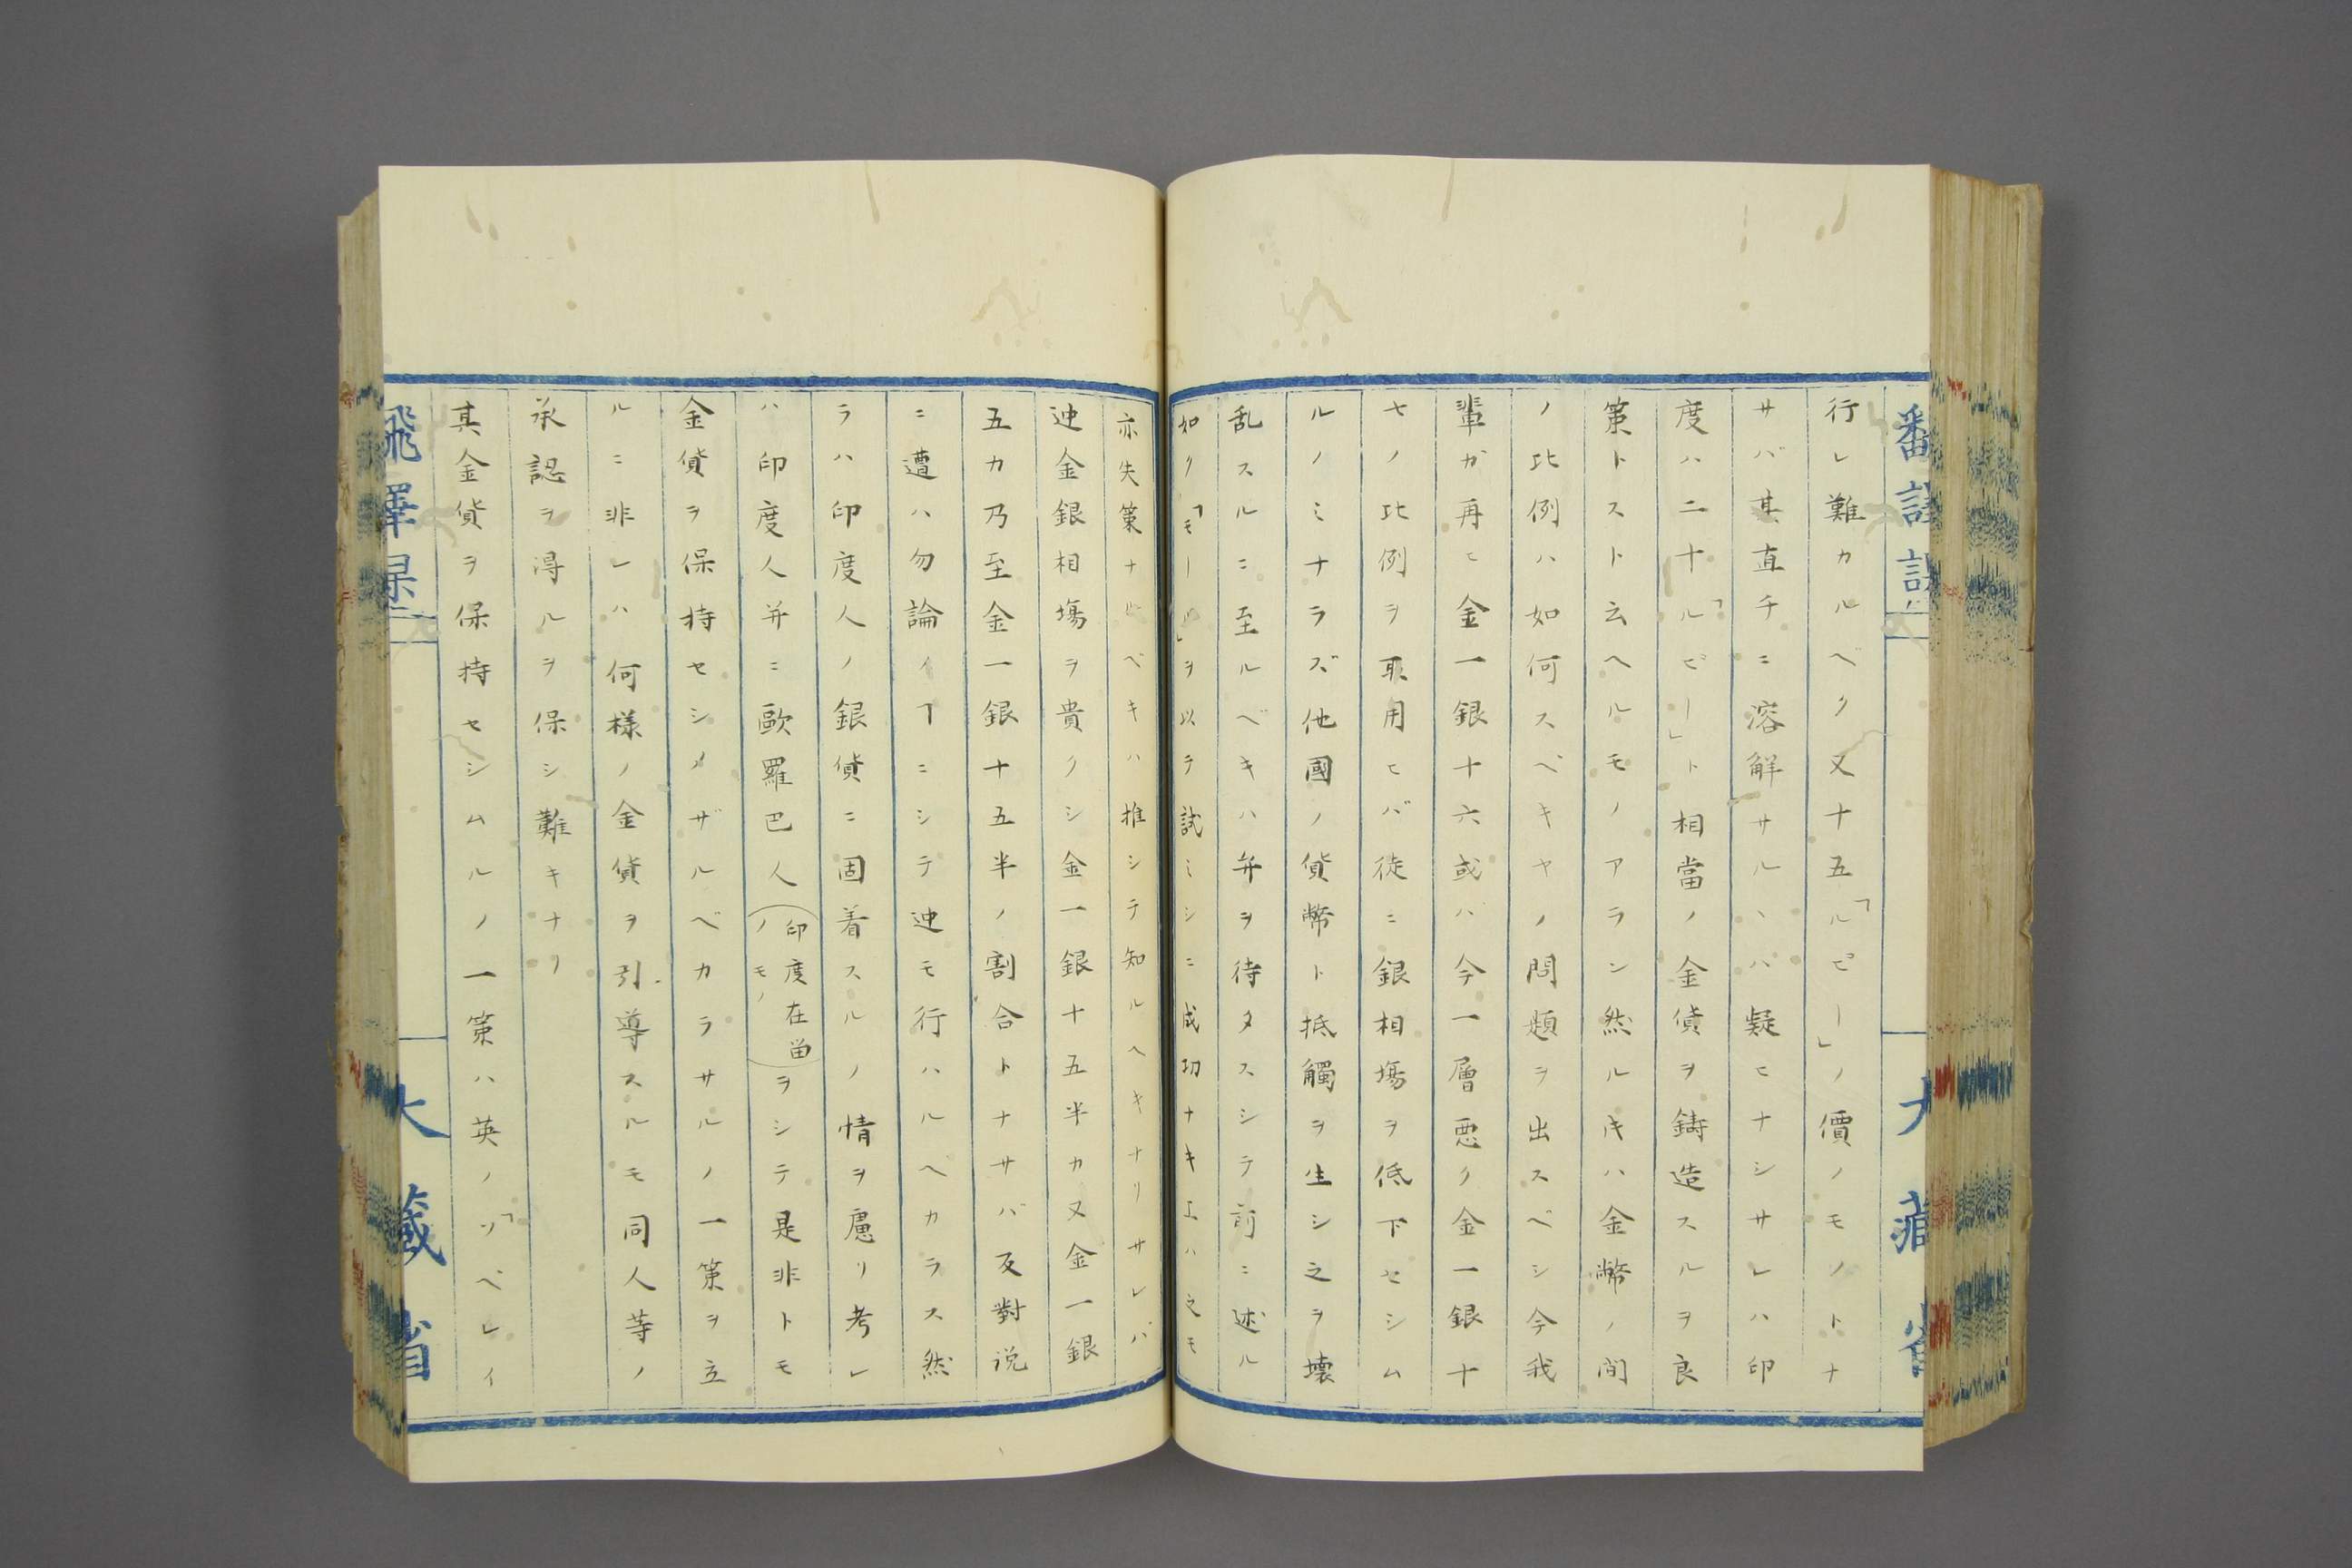 行レ難カルベク又十五「ルピー」ノ價ノモノトナ
サバ其直チニ溶解サルヽハ疑ヒナシサレハ印
度ハ二十「ルピー」ト相當ノ金貨ヲ鋳造スルヲ良
策トスト云ヘルモノアラン然ル𪜈ハ金幣ノ間
ノ比例ハ如何スベキヤノ問題ヲ出スベシ今我
輩ガ再ヒ金一銀十六或ハ今一層悪ク金一銀十
七ノ比例ヲ取用ヒバ徒ニ銀相塲ヲ低下セシム
ルノミナラズ他國ノ貨幣ト抵觸ヲ生シ之ヲ壊
乱スルニ至ルベキハ弁ヲ待タスシテ前ニ述ル
如ク「モー」ヲ以テ試ミシニ成功ナキ上ハ之モ
亦失策ナルベキハ推シテ知ルヘキナリサレバ
迚金銀相塲ヲ貴クシ金一銀十五半カ又金一銀
五カ乃至金一銀十五半ノ割合トナサバ反對説
ニ遭ハ勿論ノヿニシテ迚モ行ハルベカラス然
ラハ印度人ノ銀貨ニ固着スルノ情ヲ慮リ考レ
ハ印度人并ニ歐羅巴人(印度在留ノモノ)ヲシテ是非トモ
金貨ヲ保持セシメザルベカラサルノ一策ヲ立
ルニ非レハ何様ノ金貨ヲ引導スルモ同人等ノ
承認ヲ得ルヲ保シ難キナリ
其金貨ヲ保持セシムルノ一策ハ英ノ「ソベレイ
大藏省
大藏省